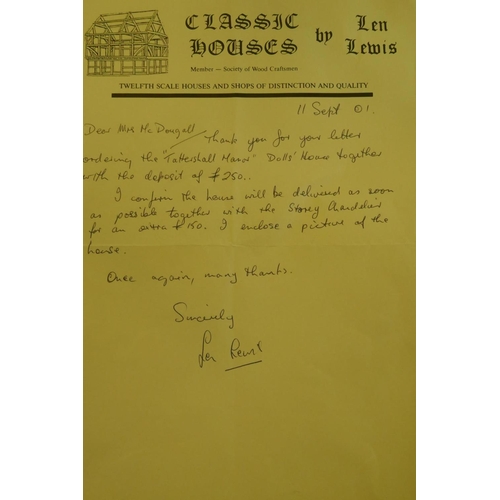 CLASSIC HOUSES by Len Lewis
Member — Society of Wood Craftsmen
TWELFTH SCALE HOUSES AND SHOPS OF DISTINCTION AND QUALITY
11 Sept 01.
Dear Mrs McDougall
Thank you for your letter
ordering the "Tattershall Manor" Dolls' House together
with the deposit of £250..
I confirm the house will be delivered as soon
as possible together with the Storey Chandelier
for an extra £150. I enclose a picture of the
house.
Once again, many thanks.
Sincerely
Len Lewis